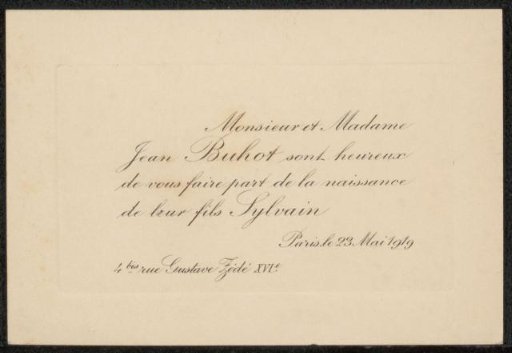 Monsieur et Madame
Jean Buhot sont heureux
de vous faire part de la naissance
de leur fils Sylvain
Paris, le 23 Mai 1919
4 bis rue Gustave Zédé XVIe